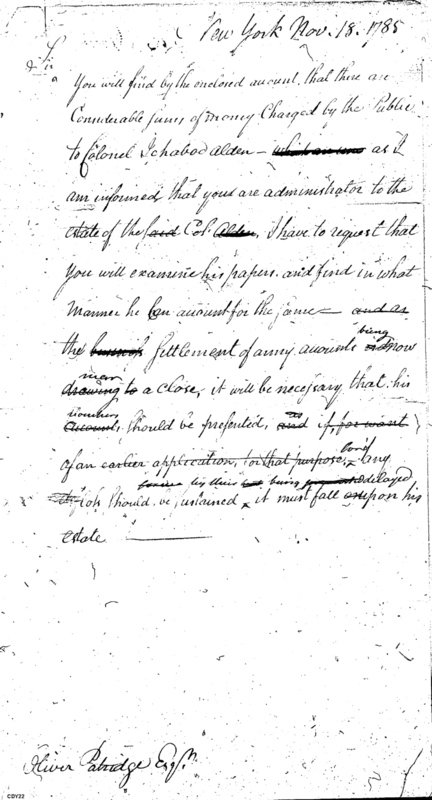 New York Nov. 18. 1785
Sir
You will find by the enclosed account, that there are
Considerable sums of money Charged by the Public
to Colonel Ichabod Alden – as I
am informed, that your are administrator to the
estate of the said Col. Alden, I have to request that
you will examine his papers. and find in what
manner he can account for the same — and as
being
the business Settlement of army accounts is now
near
drawing to a close, it will be necessary, that his
vouchers
accounts should be presented, and if, for want
of an earlier application, for that purpose, any
delayed
loss should be sustained, it must fall upon his
estate
Oliver Patridge Esqr.
CDY22